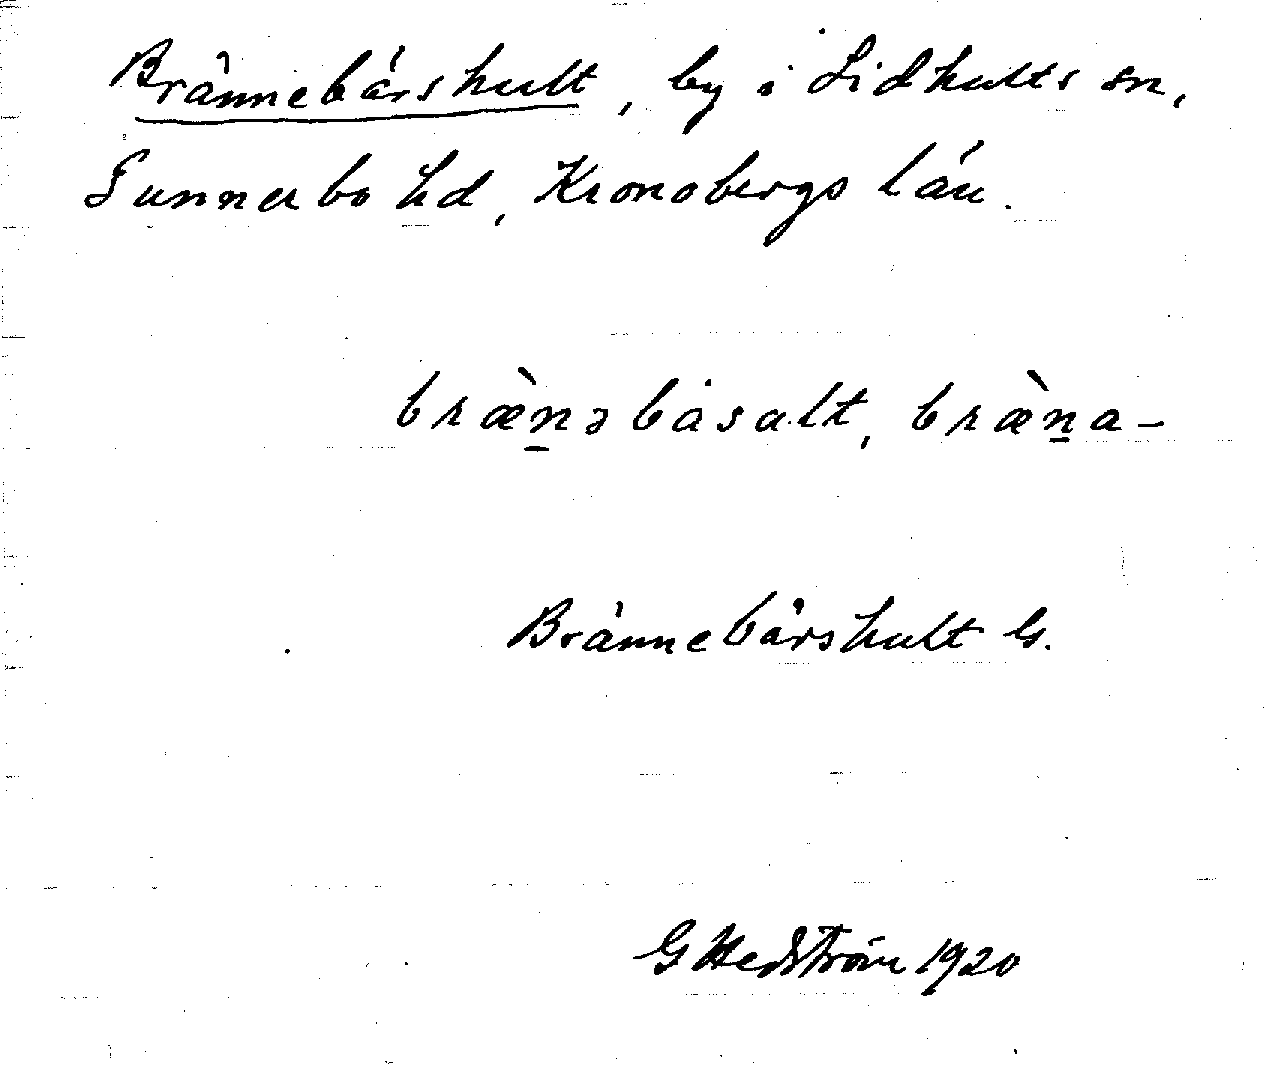 Brännebårshult, by i Lidhults sn,
Sunnerbo hd, Kronobergs län.
bræ̀n̲əbåsalt, bræ̀n̲a-
Brännebårshult G.
G Hedström 1920